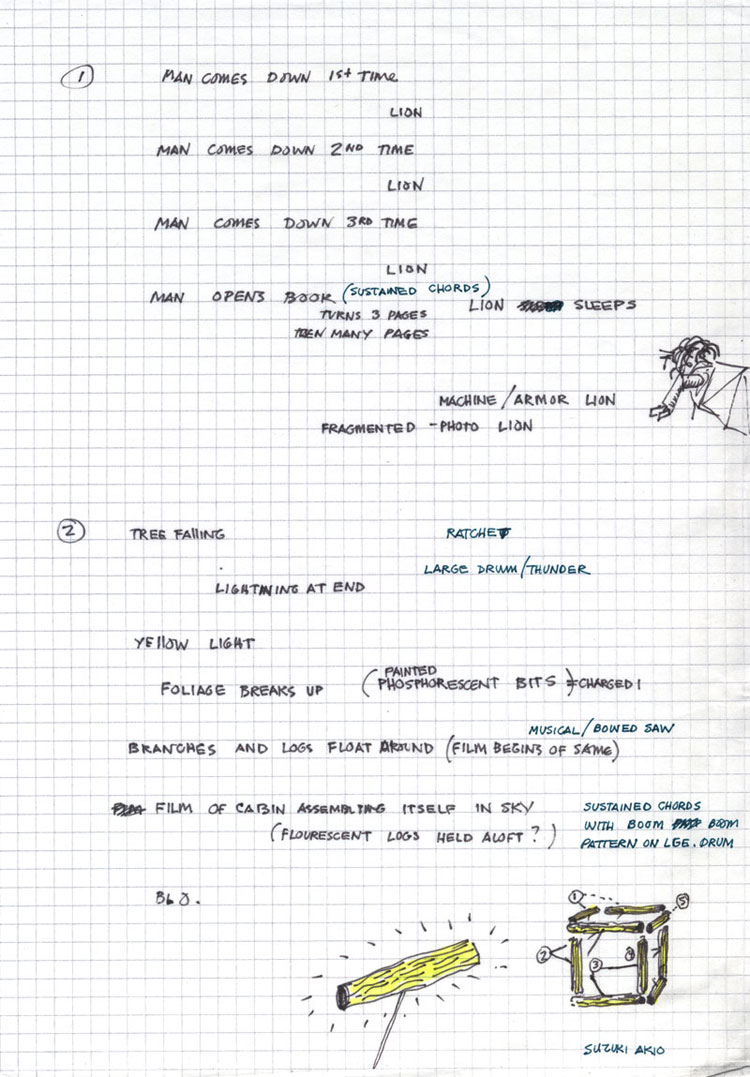 1 MAN COMES DOWN 1st TIME
LION
MAN COMES DOWN 2ND TIME
LION
MAN COMES DOWN 3RD TIME
LION
MAN OPENS BOOK (SUSTAINED CHORDS)
LION SLEEPS
TURNS 3 PAGES
THEN MANY PAGES
MACHINE/ARMOR LION
FRAGMENTED - PHOTO LION
2 TREE FAllING RATCHET
LARGE DRUM/THUNDER
LIGHTNING AT END
YEllOW LIGHT
FOLIAGE BREAKS UP (PAINTED
PHOSPHORESCENT BITS) = CHARGED!
MUSICAL/BOWED SAW
BRANCHES AND LOGS FLOAT AROUND (FILM BEGINS OF SAME)
FILM OF CABIN ASSEMBLING ITSELF IN SKY
(FLOURESCENT LOGS HELD ALOFT?)
SUSTAINED CHORDS
WITH BOOM BOOM
PATTERN ON LGE. DRUM
1
5
2
3
SUZUKI AKIO